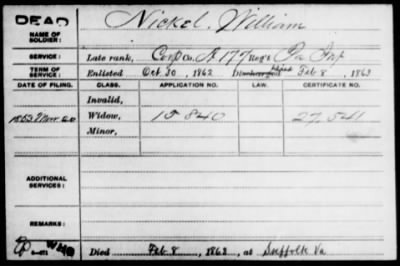 DEAD
Nickel, William
NAME OF SOLDIER:
SERVICE:
Late rank, Corp Co. A 177 Reg't Pa Inf
TERM OF SERVICE:
Enlisted Oct 30, 1862 Discharged died Feb 8, 1863
DATE OF FILING. CLASS. APPLICATION NO. LAW. CERTIFICATE NO.
Invalid,
1863 Widow, 15 840 27,541
Minor,
ADDITIONAL SERVICES:
REMARKS:
WHO
Died Feb 8, 1863, at Suffolk Va